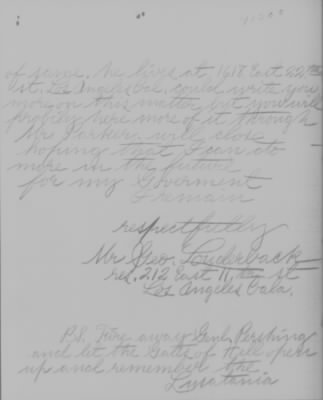 of same. he lives at, 1618 East 22nd
st, Los Angeles Cal, could write you
more on this matter but you will
probily here more of it through
Mr Parker. will close
hoping that I can do
more in the future
for my Goverment
I remain
respectfully
Mr Geo. Louderback
res. 212 East 11, th st
Los Angeles Cala.
P.S. Fire away Genl. Pershing
and let the Gates of Hell open
up and remember the
Lusatania